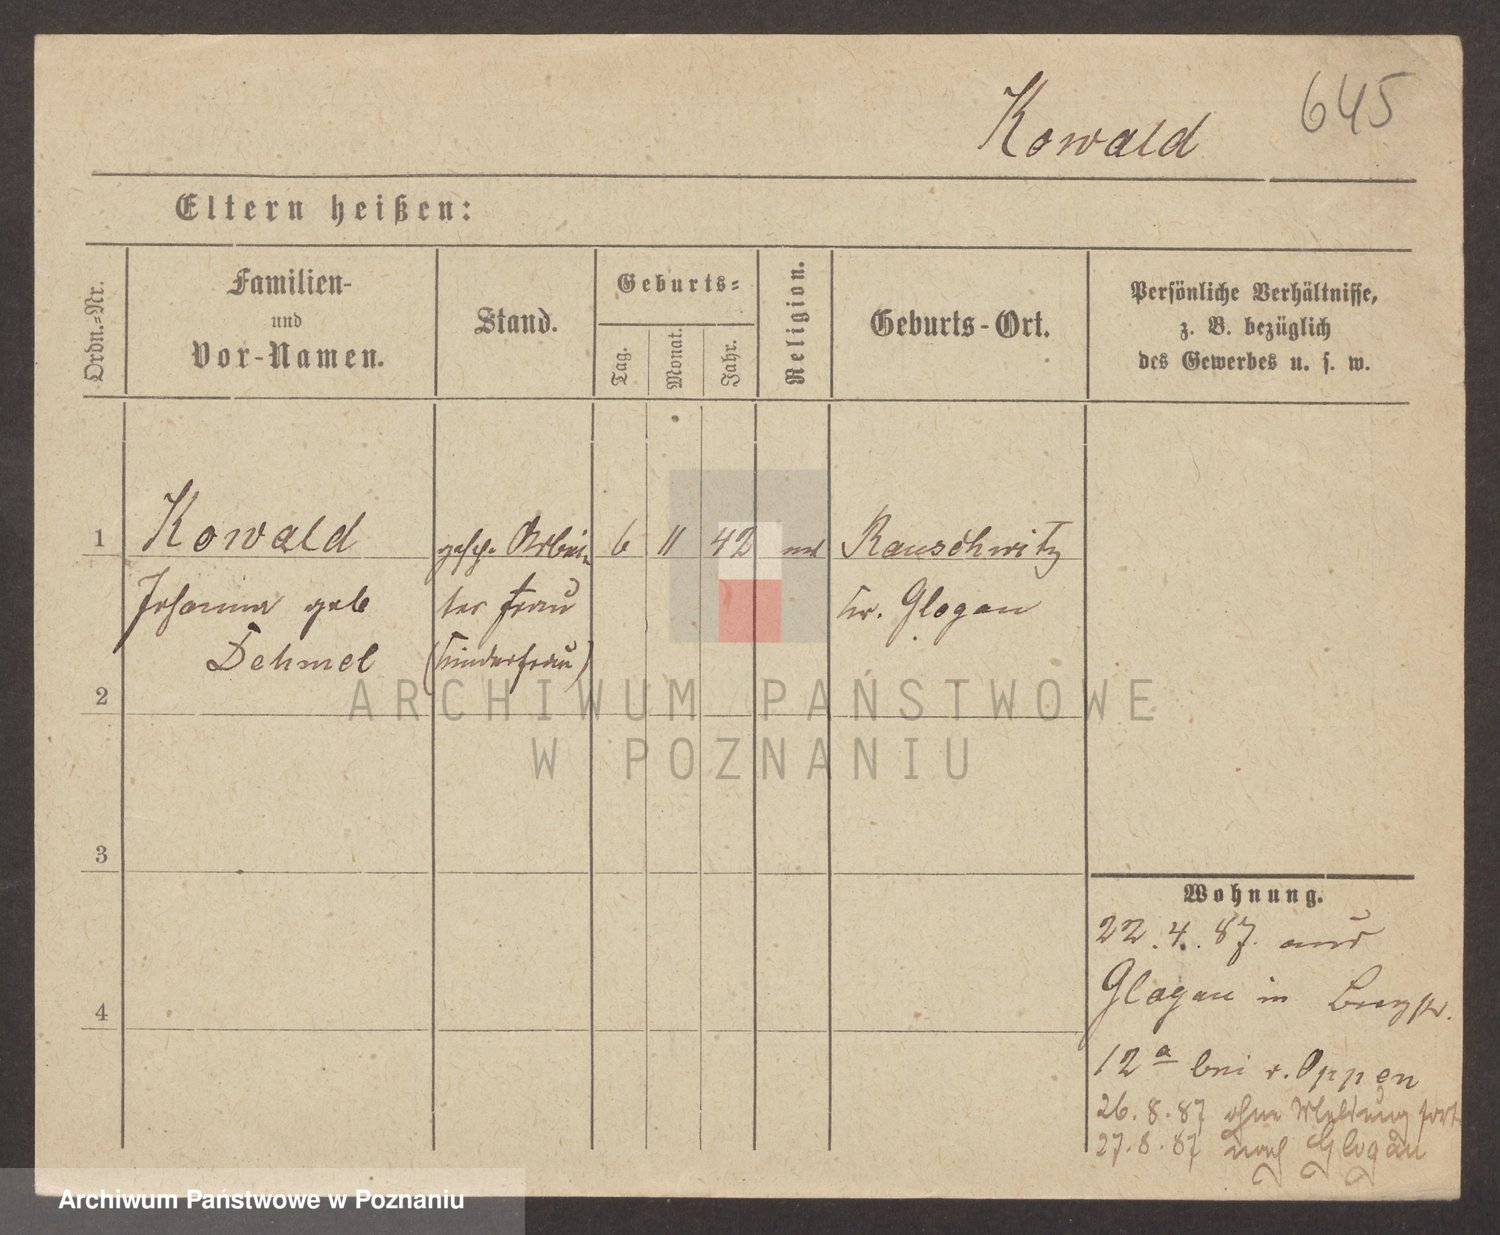 Kowald
645
Eltern heißen:
Ordn.-Nr.
Familien-
und
Vor-Namen.
Stand.
Geburts-
Tag.
Monat.
Jahr.
Religion.
Geburts-Ort.
Persönliche Verhältnisse,
z. B. bezüglich
des Gewerbes u. s. w.
1
Kowald
gesch. Arbei-
6
11
42
Rauschwitz
Johanna geb
ter frau
Kr. Glogau
Dehmel
(Kinderfrau)
2
ARCHIWUM PAŃSTWOWE
W POZNANIU
3
Wohnung.
22.4.87. aus
Glogau in
4
12a bei v. Oppen
26.8.87 ohne Meldung fort
27.8.87 nach Glogau
Archiwum Państwowe w Poznaniu